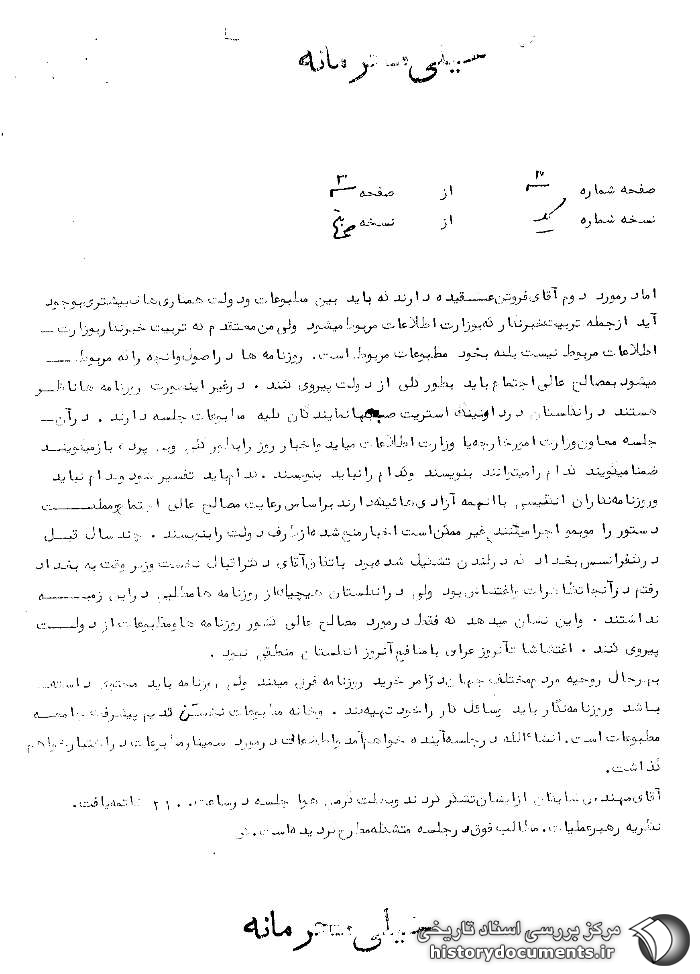 خیلی محرمانه
صفحه شماره ۳ از صفحه ۳
نسخه شماره یک از نسخه پنج
اما در مورد دوم آقای فروتن عقیده دارند که باید بین مطبوعات و دولت همکاری های بیشتری بوجود
آید از جمله تربیت خبرنگار که بوزارت اطلاعات مربوط میشود ولی من معتقدم که تربیت خبرنگار بوزارت
اطلاعات مربوط نیست بلکه بخود مطبوعات مربوط است. روزنامه ها در اصول و آنچه را که مربوط
میشود بمصالح عالی اجتماع باید بطور کلی از دولت پیروی کنند. در غیر اینصورت روزنامه ها ناظر
هستند در انگلستان در داونینگ استریت صبحها نمایندگان کلیه مطبوعات جلسه دارند. در آن
جلسه معاون وزارت امور خارجه یا وزارت اطلاعات میاید و اخبار روز را بطور کلی وبی پرده بازمیگوید
ضمنا میگویند کدام را میتوانند بنویسند و کدام را نباید بنویسند. کدام باید تفسیر شود و کدام نباید
و روزنامه نگاران انگلیسی با آنهمه آزادی هائیکه دارند براساس رعایت مصالح عالی اجتماع و مملکت
دستور را موبمو اجرا میکنند غیر ممکن است اخبار منع شده از طرف دولت را بنویسند. چند سال قبل
در کنفرانس بغداد که در لندن تشکیل شده بود باتفاق آقای دکتر اقبال نخست وزیر وقت به بغداد
رفتم در آنجا تظاهرات و اغتشاش بود ولی در انگلستان هیچیک از روزنامه ها مطلبی در این زمینه
نداشتند. و این نشان میدهد که فقط در مورد مصالح عالی کشور روزنامه ها و مطبوعات از دولت
پیروی کنند. اغتشاشات آنروز عراق با منافع آنروز انگلستان منطبق نبود.
بهرحال روحیه مردم مختلف جهان در امر خرید روزنامه فرق میکند ولی روزنامه باید محتوی داشته
باشد و روزنامه نگار باید وسائل کار را خود تهیه کند. و خانه مطبوعات نخستین قدم پیشرفت جامعه
مطبوعات است. انشاءالله در جلسه آینده خواهم آمد و اطلاعات در مورد سمینار مطبوعات در اختیار خواهم
گذاشت.
آقای مهندس شایگان از ایشان تشکر کردند و بعلت گرمی هوا جلسه در ساعت ۲۱۰۰ خاتمه یافت.
نظریه رهبر عملیات. مطالب فوق در جلسه متشکله مطرح گردیده است.
خیلی محرمانه
مرکز بررسی اسناد تاریخی
historydocuments.ir